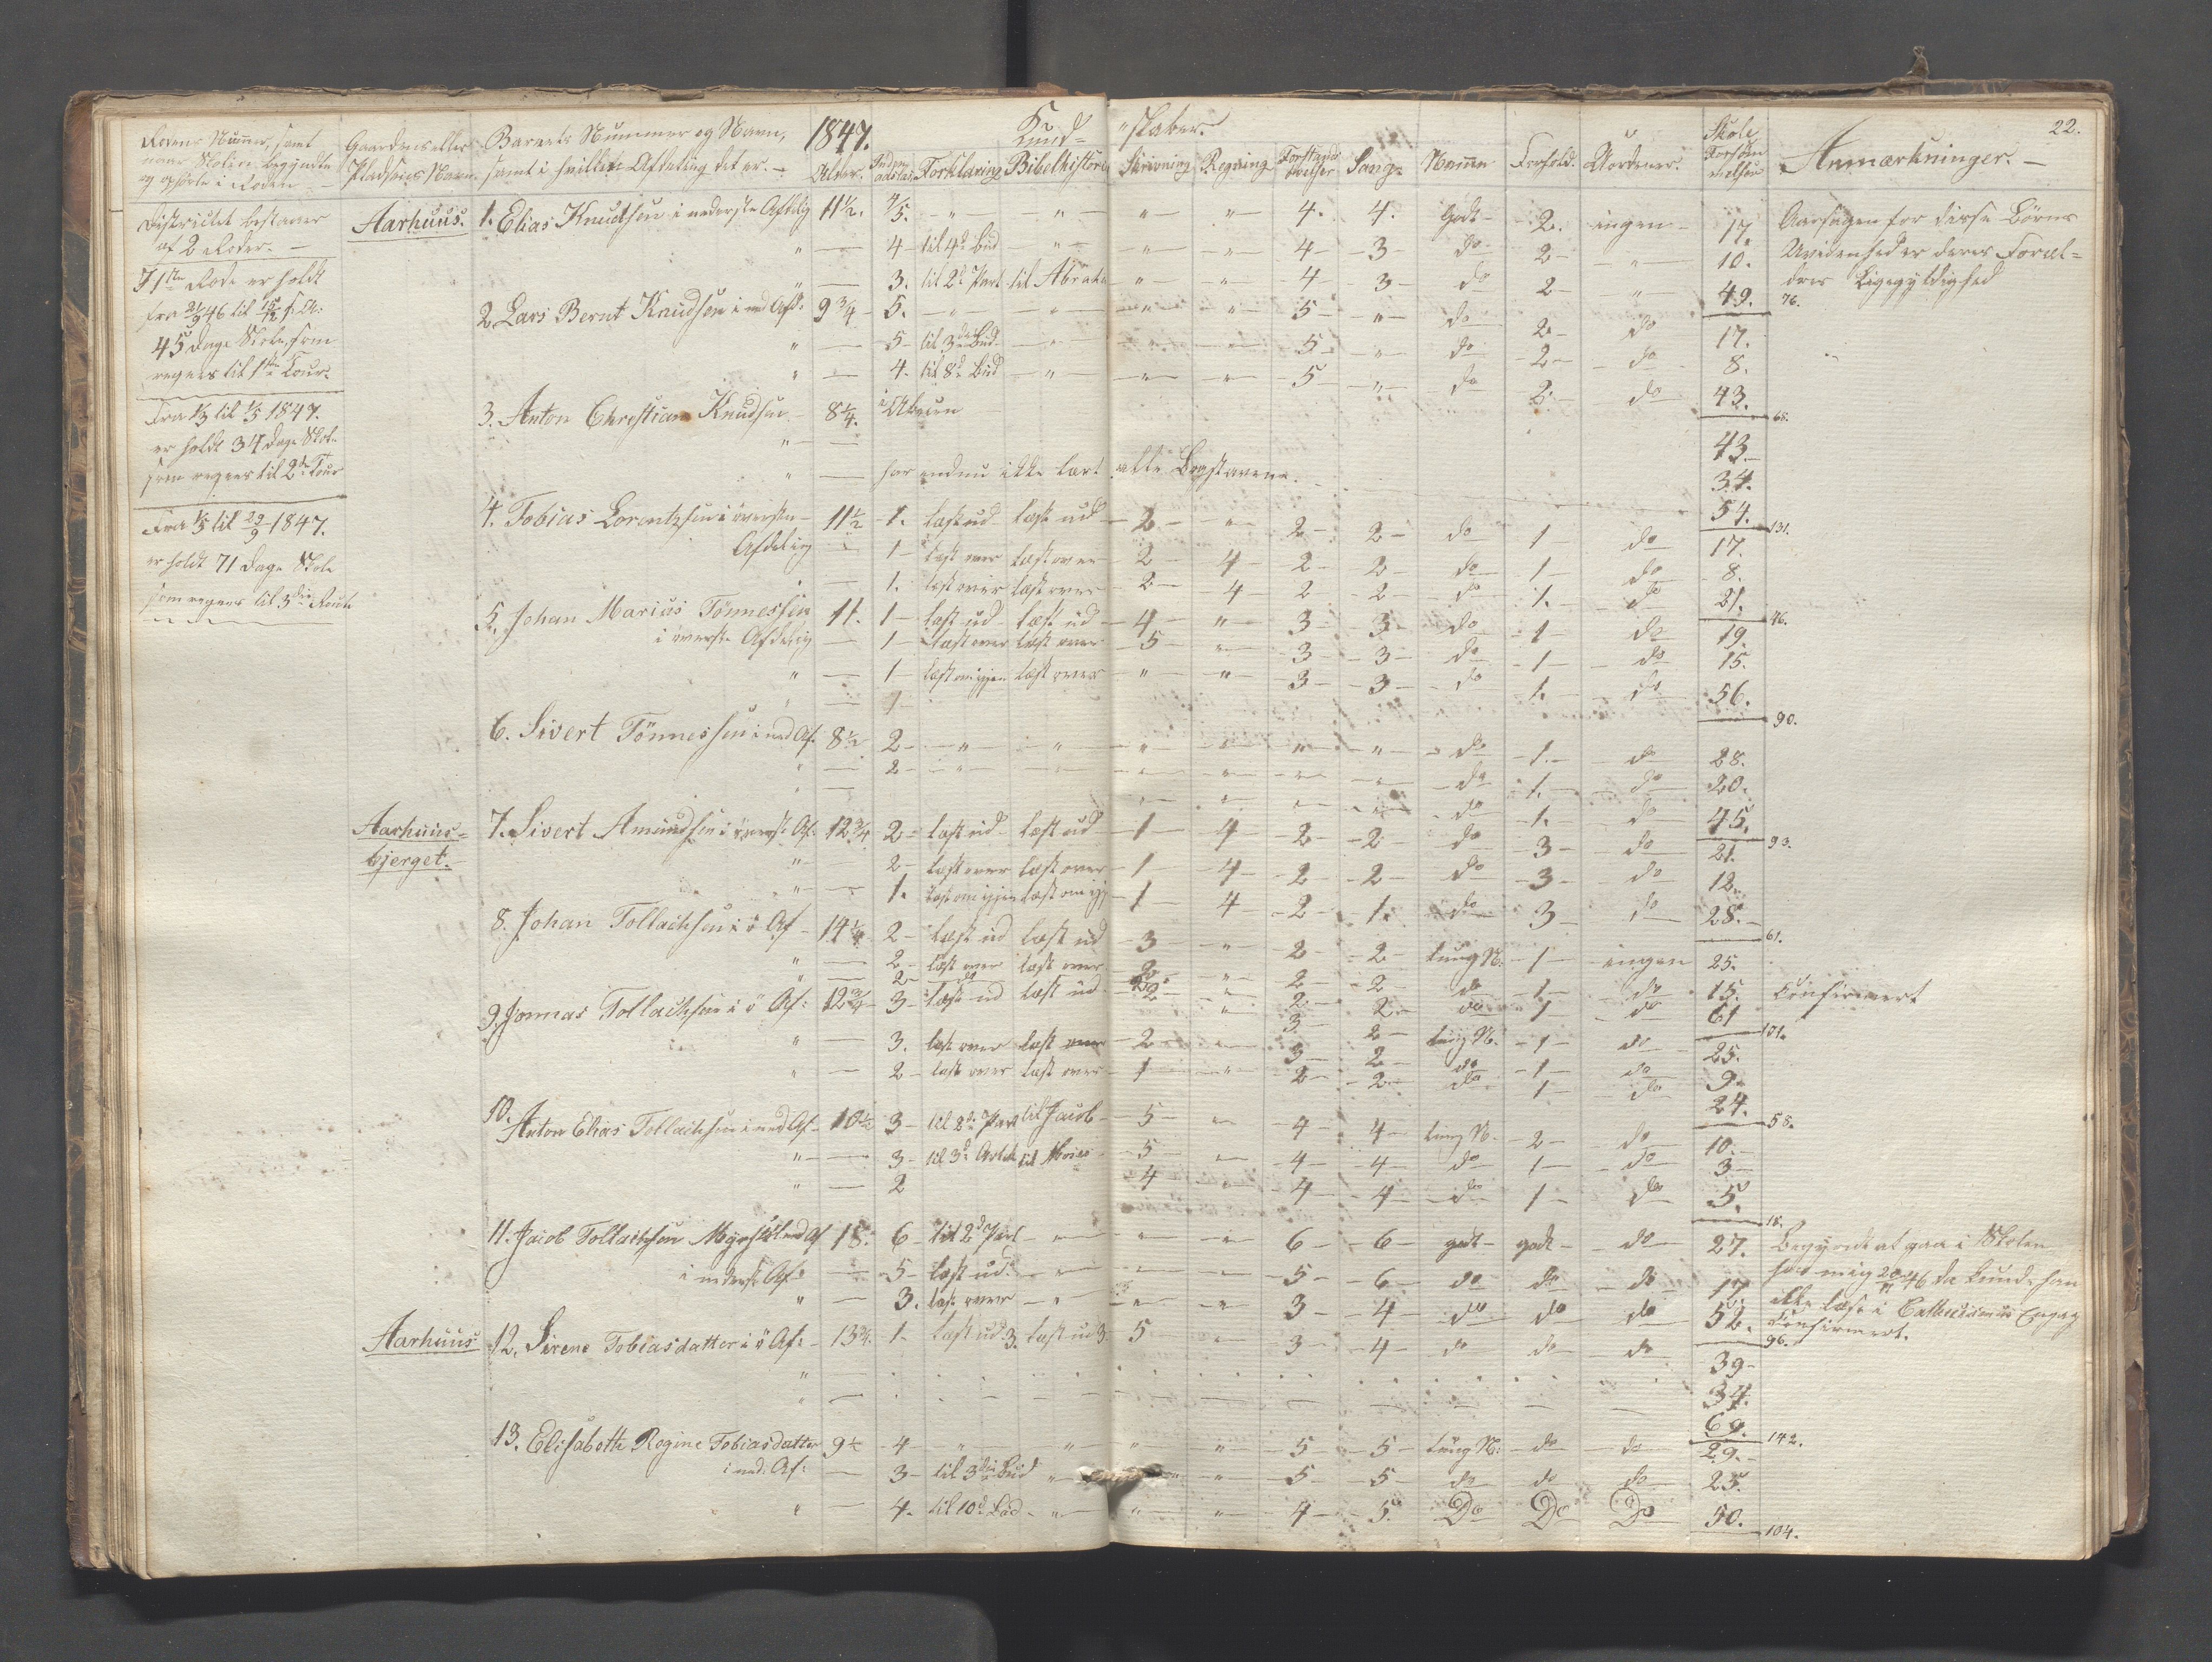 22.
Rodens Nummer, samt
naar Skolen begyndte
og ophörte i Roden
Gaardens eller
Pladsens Navn.
Barnets Nummer og Navn,
samt i hvilken Afdeling det er.
1847.
Alder.
Kund- "skaber.
Forklaring Bibelhistorie Skrivning Regning Forstands øvelser Sang Nemme Forhold. Uordener. Skole Forsømmelser Anmærkninger.
Districtet bestaaer
af 2 Roder.
I 1ste Rode er holdt
45 Dage Skole, som
regnes til 1ste Tour.
Fra 1/3 til 1/5 1847.
er holdt 34 Dage Skole
som regnes til 2den Tour
Fra 1/5 til 29/9 1847.
er holdt 71 Dage Skole
som regnes til 3die Route
Aarhuus. 1. Elias Knudsen i nederste Afdelig 11½. 4/5. " " " " 4. 4. Godt 2. ingen 17. Aarsagen for disse Børns
" 4 til 4d Bud " " " 4 3 do 2 " 10. Uvidenhed er deres Foræl-
" 3. til 2d Part til Abraha " " 4 3 do 2 " 49. 76. dres Ligegyldighed
2. Lars Bernt Knudsen i ned Afd. 9¾ 5. " " " " 5 " do 2 do 17.
" 5 til 3die Bud " " " 5 " do 2 do 8.
" 4. til 8d Bud " " " 5 " do 2 do 43. 68.
3. Anton Christian Knudsen 8¼. i Abeien
" 43.
" har endnu ikke lært alle Bogstavene. 34.
54. 131.
4. Tobias Lorentzsen i øversten 11½ 1. læst ud læst ud 2 " 2 2 do 1 do 17.
Afdelig 1 læst over læst over 2 4 2 2 do 1 do 8.
1. læst over læst over 2 4 2 2 do 1. do 21. 46.
5. Johan Marius Tönnessen 11. 1 læst ud læst ud 4 " 3 3 do 1 do 19.
i øverste Afdelig 1 læst over læst over 5 " 3 3 do 1 do 15.
" 1 læst om igjen læst over " " 3 3 do 1. do 56. 90.
6. Sivert Tönnessen i ned Af. 8½ 2 " " " " " " do 1. do 28.
" 2 " " " " " " do 1. do 20.
" " " " " do 1. do 45. 93.
Aarhuus- 7. Sivert Amundsen i øverst. Af. 12¾ 2 læst ud læst ud 1 4 2 2 do 3 do 21.
bjerget. " 2 læst over læst over 1 4 2 2 do 3 do 12.
" 1. læst om igjen læst om igj 1 4 2 1. do 3 do 28. 61.
8. Johan Tollachsen i ö Af 14¼ 2 læst ud læst ud 3 " 2 2 tung N. 1 ingen 25.
" 2 læst over læst over 2 " 2 2 do 1 do 15. Confirmert
" 2 do 2 " 2 2 do 1 do 61 101.
9. Jonnas Tollachsen i ö Af: 12¾ 3 læst ud læst ud 2 " 3 2 tung N. 1 do 25.
" 3. læst over læst over 2 " 3 2 do 1 do 9.
" 2 læst over læst over 1 " 2 2 do 1 do 24. 58.
10. Anton Elias Tollachsen i ned Af 10½ 3 til 2d Part til Jacob 5 " 4 4 tung N. 2 do 10.
" 3 til 3d Artik til Moses 5 " 4 4 do 1 do 3
" 2 4 " 4 4 do 1 do 5. 18.
11. Jacob Tollachsen 18. 6 til 2d Part " " " 6 6 godt godt do 27. Begyndt at gaa i Skolen
i nederst Af: 5 læst ud. " " " 5 6 do do do 17. hos mig 46 da kunde han
" 3. læst over " " " 3 4 do do do 52. 96. ikke læse i Cathecismus
Confirmert.
Aarhuus 12. Sirene Tobiasdatter i ö Af: 13¾. 1. læst ud 3. læst ud 3. 5 " 3 4 do do do 39
" 34.
" 69. 142.
13. Elisabeth Regine Tobiasdatter 9½ 4 " " " " 5 5 tung N: do do 29.
i ned: Af: 3 til 3die Bud " " " 5 5 do do do 25.
" 4. til 10d Bud " " " 4 5. Do Do Do 50. 104.